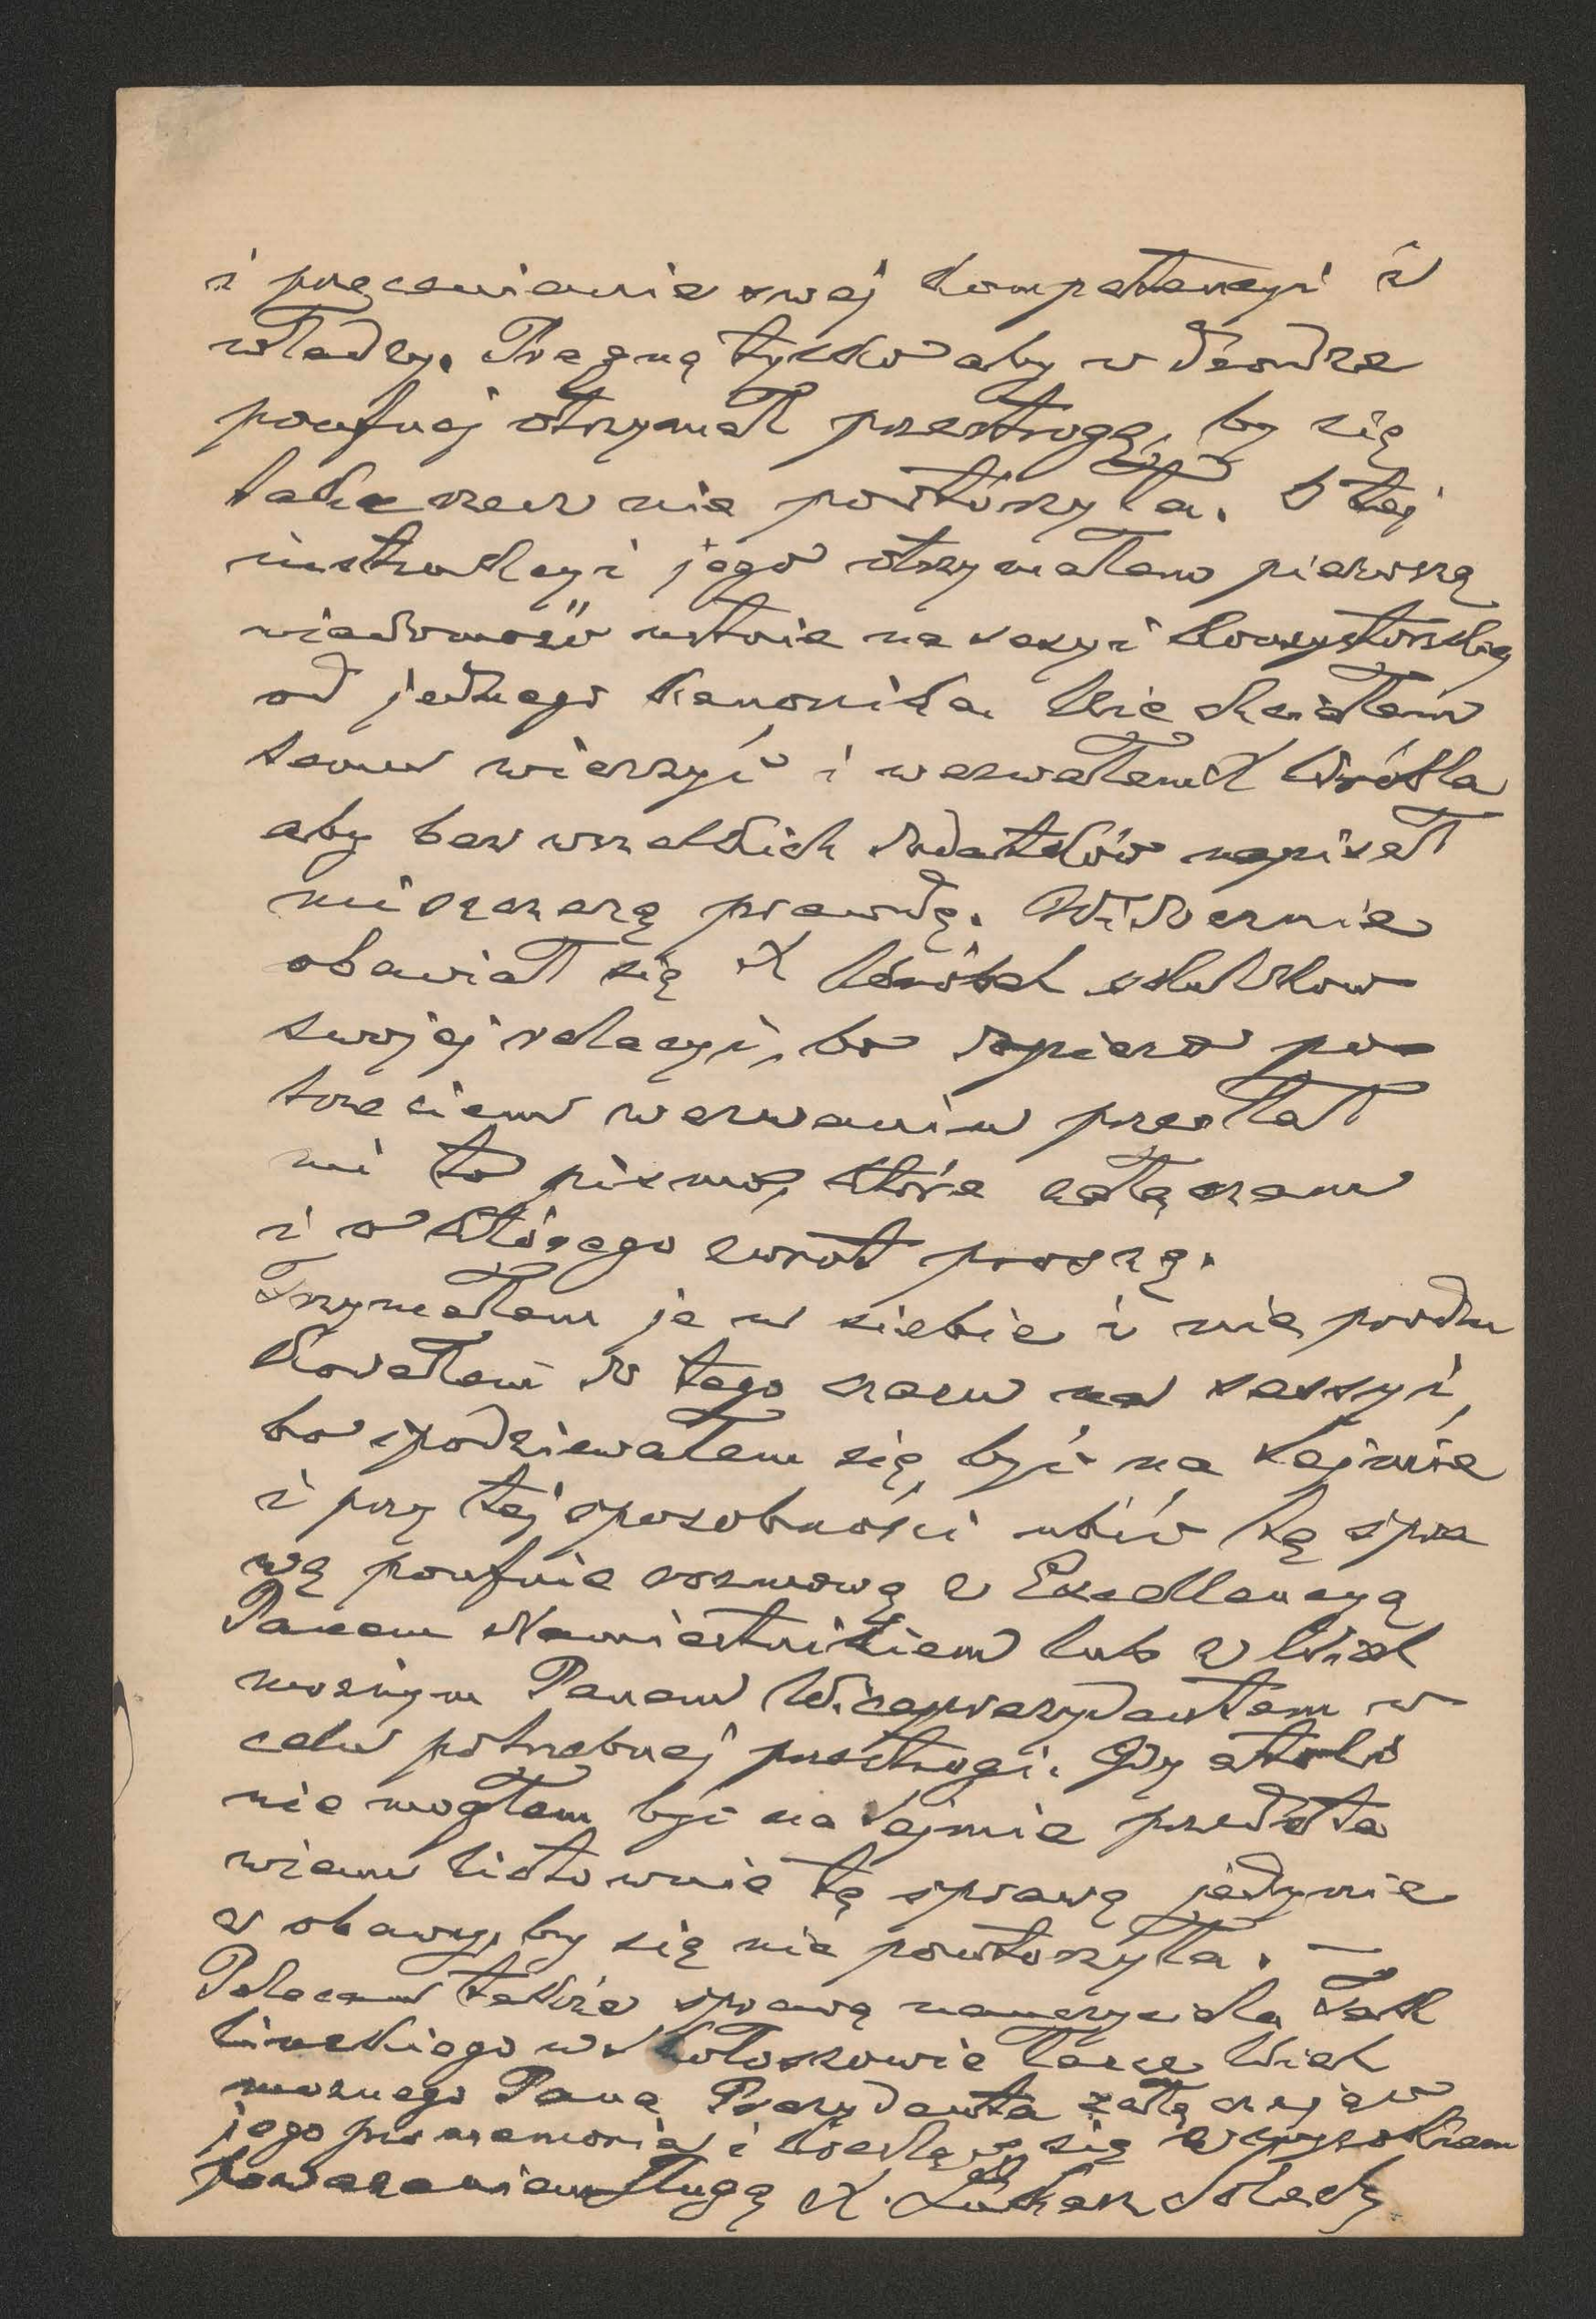 i przecenianie swej kompetencyi i
władzy. Pragnę tylko aby w drodze
poufnej otrzymał przestrogę, by się
taka rzecz nie powtórzyła. O tej
instrukcyi jego otrzymałem pierwszą
wiadomość ustnie na sesyi konsystorskiej
od jednego kanonika. Nie chciałem
temu wierzyć i wezwałem X Wróbla
aby bez wszelkich dodatków napisał
mi szczerą prawdę. Widocznie
obawiał się X Wróbel skutków
swojej relacyi, bo dopiero po
trzeciem wezwaniu przesłał
mi to pismo, które załączam
i o którego zwrot proszę.
Trzymałem je u siebie i nie produ
kowałem do tego czasu na sessyi,
bo spodziewałem się być na Sejmie
i przy tej sposobności ubić tę spra
wę poufnie rozmową z Excellencyą
Panem Namiestnikiem lub z Wiel
możnym Panem Wiceprezydentem w
celu potrzebnej przestrogi. Gdy atoli
nie mogłem być na Sejmie przedsta
wiam listownie tę sprawę jedynie
z obawy, by się nie powtórzyła. —
Polecam także sprawę nauczyciela
w Wiel
możnego Pana Prezydenta załączając
jego promemoria i kreślę się z wysokiem
poważaniem sługą X. Łukasz Solecki